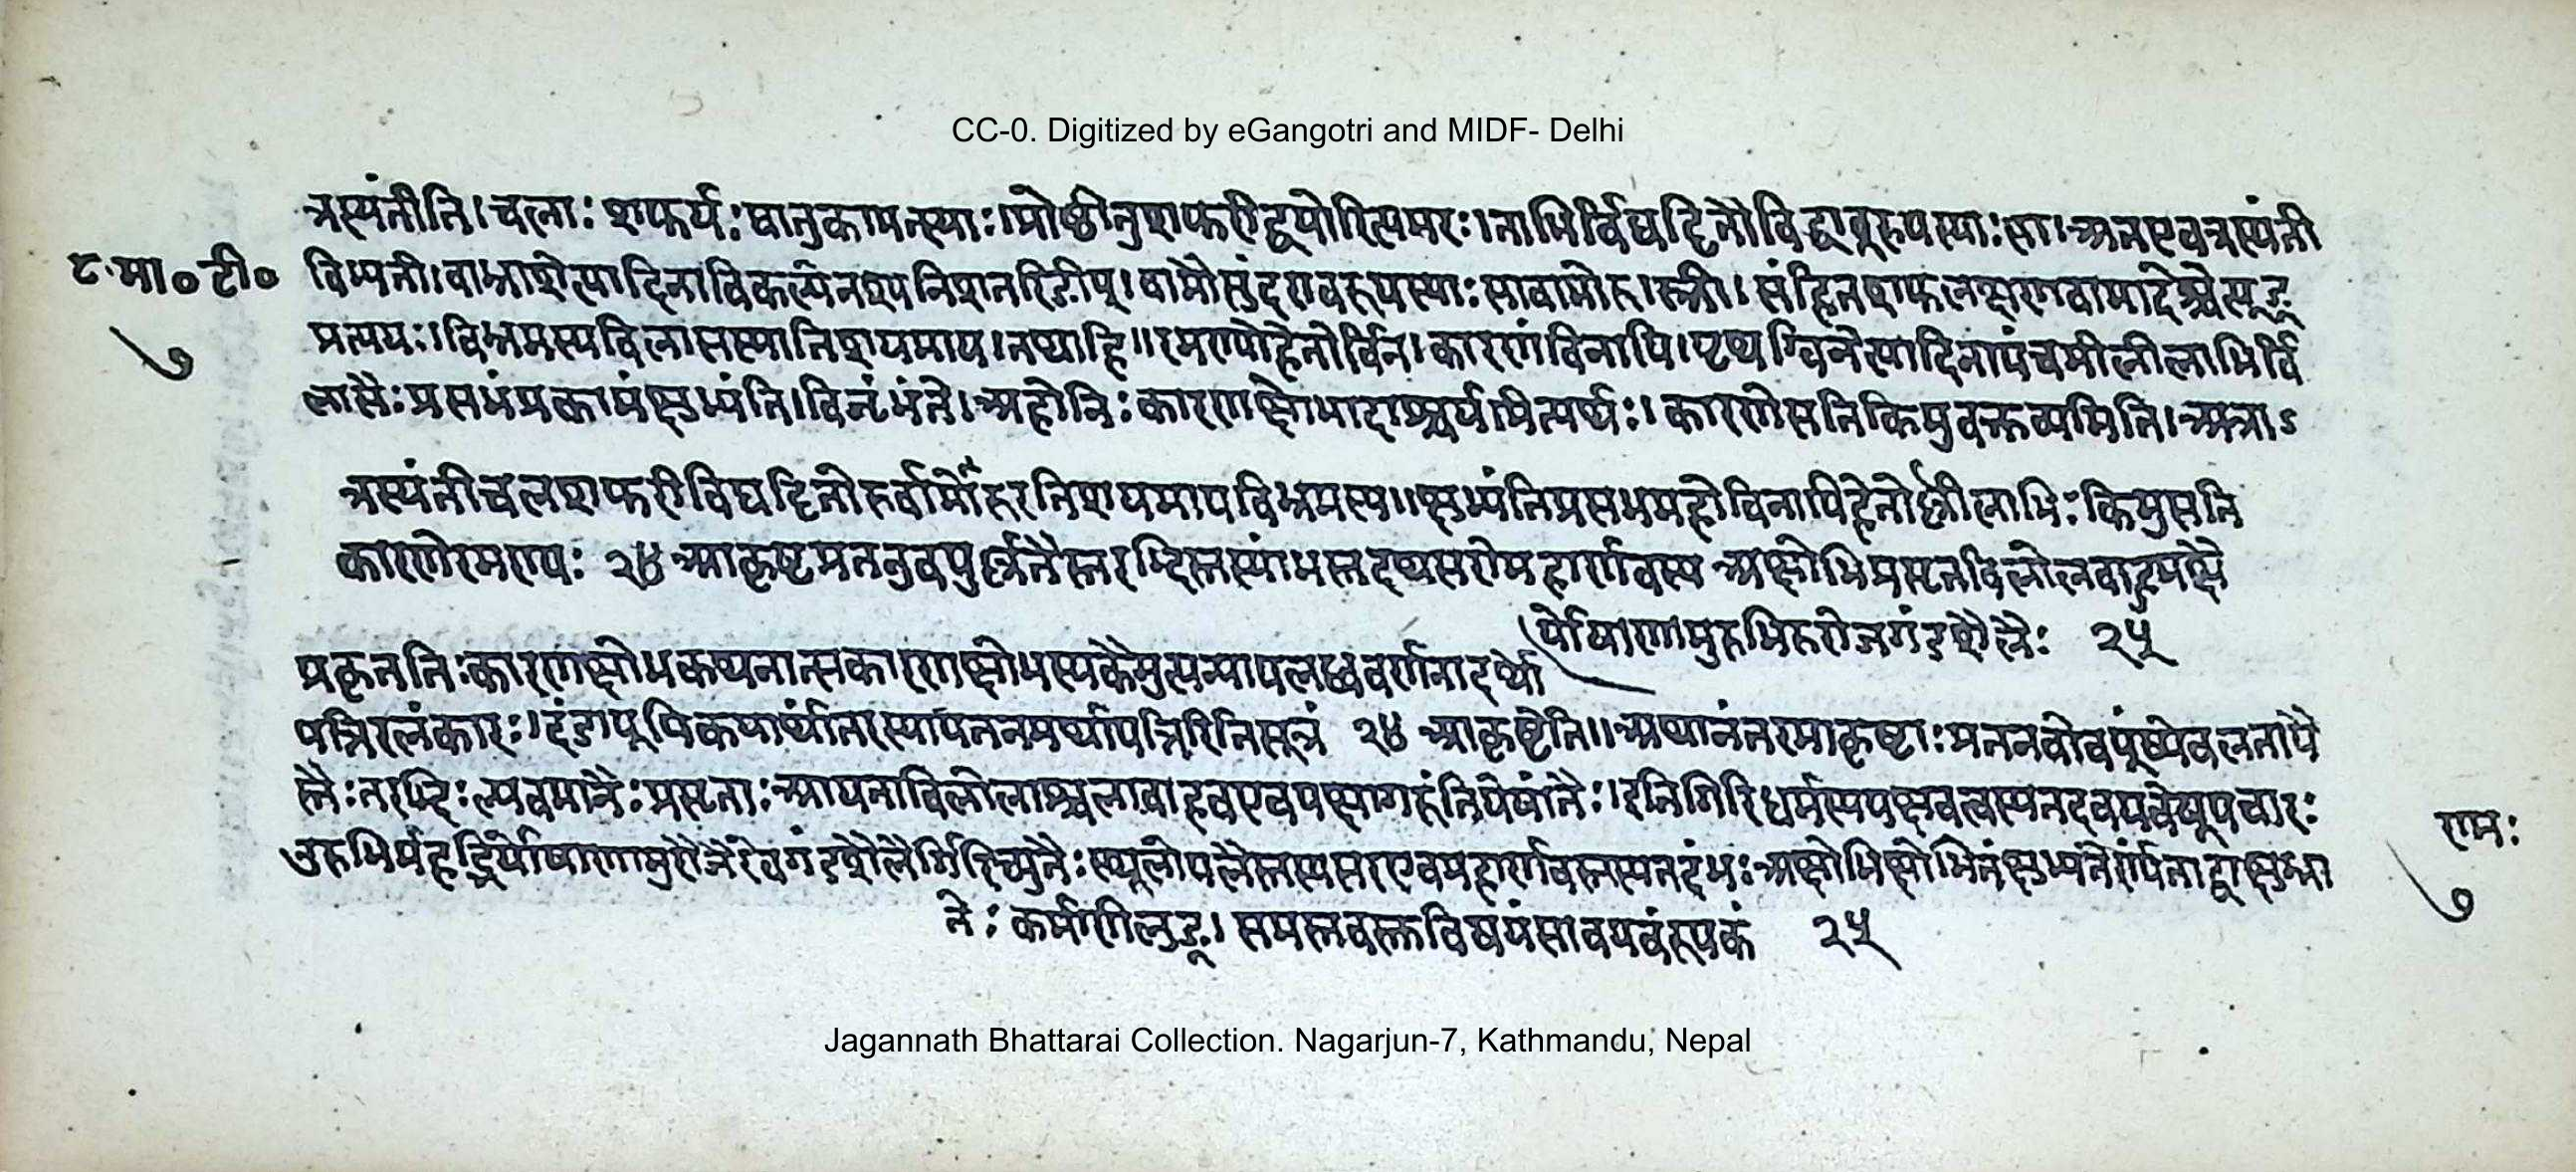 CC-0. Digitized by eGangotri and MIDF- Delhi
त्रस्यंतीति। चलाः शफर्यः यानुकामत्स्याः। प्रोष्ठीतुशफरीद्वयोरित्यमरः। ताभिर्विघट्टितौविद्धावूरुयस्याः सा। अतएवत्रस्यंती
८ मा० टी०
बिभ्यती। वाभ्राशेत्यादिनाविकल्पेनश्यनिशतरिङीप्। वामौसुंदरावूरूयस्याः सावामोरूः स्त्री। संहितशफलक्षणवामादेश्चेत्यूङ्
७
प्रत्ययः। विभ्रमस्यविलासस्यातिशयमाप। तथाहि॥ रमण्योहेतोर्विना कारणंविनापि। पृथग्विनेत्यादिनापंचमीलीलाभिर्वि
लासैः प्रसभंप्रकामंक्षुभ्यंति। अहोत्रिः कारणक्षोभादाश्चर्यमित्यर्थः। कारणेसतिकिमुवक्तव्यमिति। अत्राऽ
त्रस्यंतीचलशफरीविघट्टितोरुर्वामोरूरतिशयमापविभ्रमस्य॥ क्षुभ्यंतिप्रसभमहोविनापिहेतोर्लीलाभिः किमुसति
कारणेरमण्यः २४ आकृष्टप्रतनुवपुर्लतैस्तरद्भिस्तस्यांभस्तदथसरोमहार्णवस्य अक्षोभिप्रसृतविलोलबाहुपक्षै
र्योषाणामुरुभिरुरोजगंडशैलैः २५
प्रकृततिः कारणक्षोभकथनात्सकारणक्षोभस्यकैमुत्यन्यायलब्धवर्णनादर्था
पत्तिरलंकारः। दंडापूपिकयार्थांतरस्यापतनमर्थापत्तिरितिसूत्रं २४ आकृष्टेति॥ अथानंतरमाकृष्टाः प्रतनवोवपूंष्येवलतायै
स्तैः तरद्भिः प्लवमानैः प्रसृताः आयताविलोलाश्चलाबाहवएवपक्षागरुंतियेषांतैः। इतिगिरिधर्मस्यपक्षवत्वस्यतदवयवेषूपचारः
उरुभिर्महद्भिर्योषाणामुरोजैरेवगंडशैलैर्गिरिच्युतैः स्थूलोपलैस्तस्यसरएवमहार्णवस्तस्यतदंभः अक्षोभिक्षोभितंक्षुभ्यतेर्ण्यंताद्वाक्षुभ्ना
रामः
७
तेः कर्मणिलुङ्। समस्तवस्तुविषयंसावयवंरूपकं २५
Jagannath Bhattarai Collection. Nagarjun-7, Kathmandu, Nepal